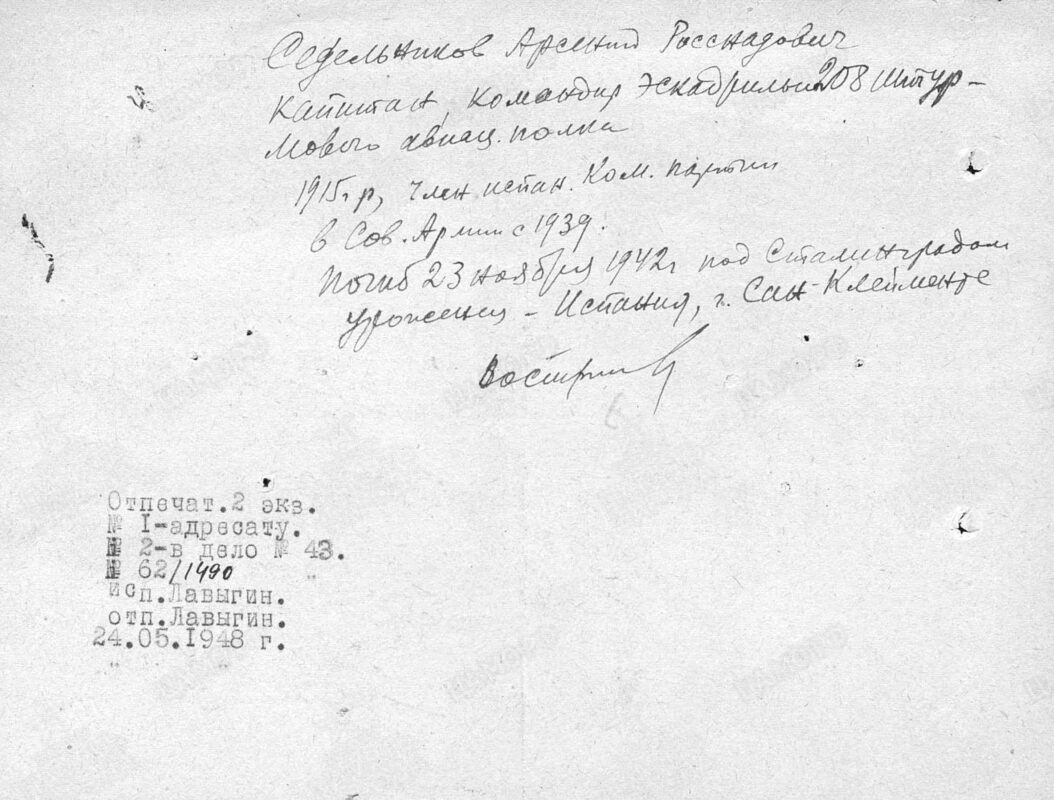 Седельников Арсений Росснадович
капитан, командир эскадрильи 208 штур-
мового авиац. полка
1915г р, член испан. Ком. партии
в Сов. Армии с 1939.
Погиб 23 ноября 1942г под Сталинградом
уроженец - Испания, г. Сан-Клейменте
Отпечат.2 экз.
№ I-адресату.
№ 2-в дело № 43.
№ 62/1490
исп.Лавыгин.
отп.Лавыгин.
24.05.I948 г.